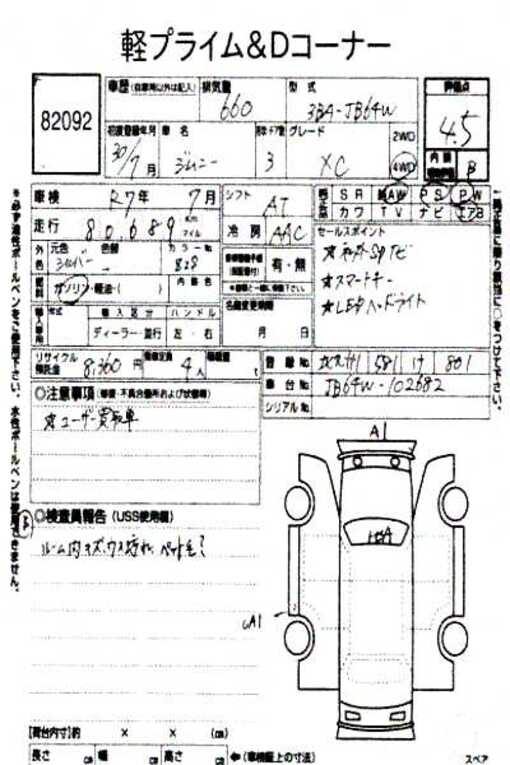 軽プライム&Dコーナー
82092
車歴 (自家用以外は記入)
排気量 660
型式 3BA-JB64W
評価点 4.5
初度登録年月 30/7月
車名 ジムニー
ドア数 3
グレード XC
2WD
4WD
内装 B
車検 R7年 7月
シフト AT
走行 80,689 Km マイル
冷房 AAC
SR AW PS PW
カワ TV ナビ エアB
外色 元色 シルバー 色替
カラーNo
内装色
燃料 ガソリン・軽油・( )
有・無
セールスポイント
☆社外SDナビ
☆スマートキー
☆LEDヘッドライト
輸入車用 年式 輸入区分 ハンドル
ディーラー・並行 左・右
名義変更期限
月 日
リサイクル預託金 8,360円
乗車定員 4人
積載量 t
登録No. 581 け 801
車台No. JB64W-102682
シリアルNo.
◎注意事項 (修復・不具合箇所および状態等)
☆ユーザー買取車
◎検査員報告 (USS使用欄)
ルーム内キズ、ウス汚れ、ペット毛?
A1
A1
[荷台内寸]約 × × (cm)
長さ cm 幅 cm 高さ cm ←(車検証上の寸法)
スペア
※必ず油性ボールペンをご使用下さい。水性ボールペンは使用できません。